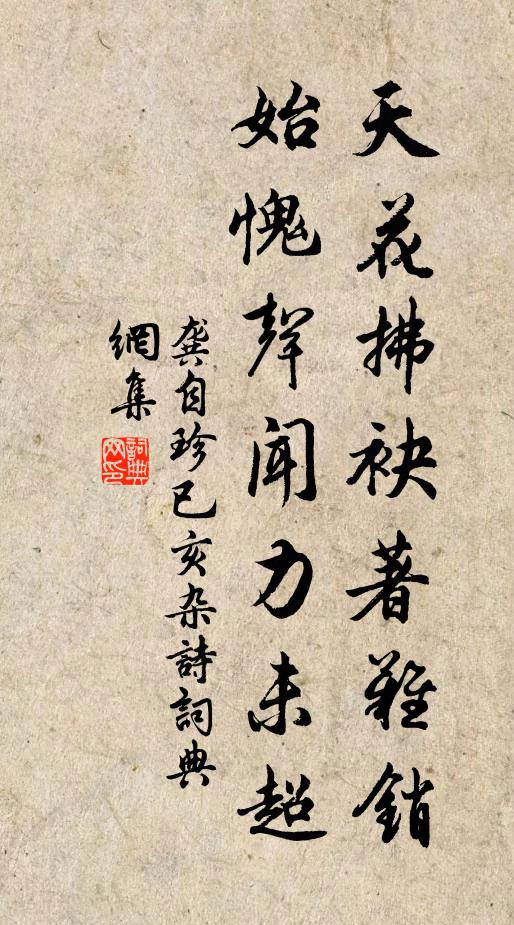 天花拂袂著難銷
始愧聲聞力未超
龔自珍己亥杂詩詞典
網集
詞典網印